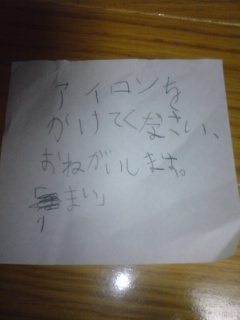 アイロンを
かけてくなさい、
おねがいします。
「まい」
り